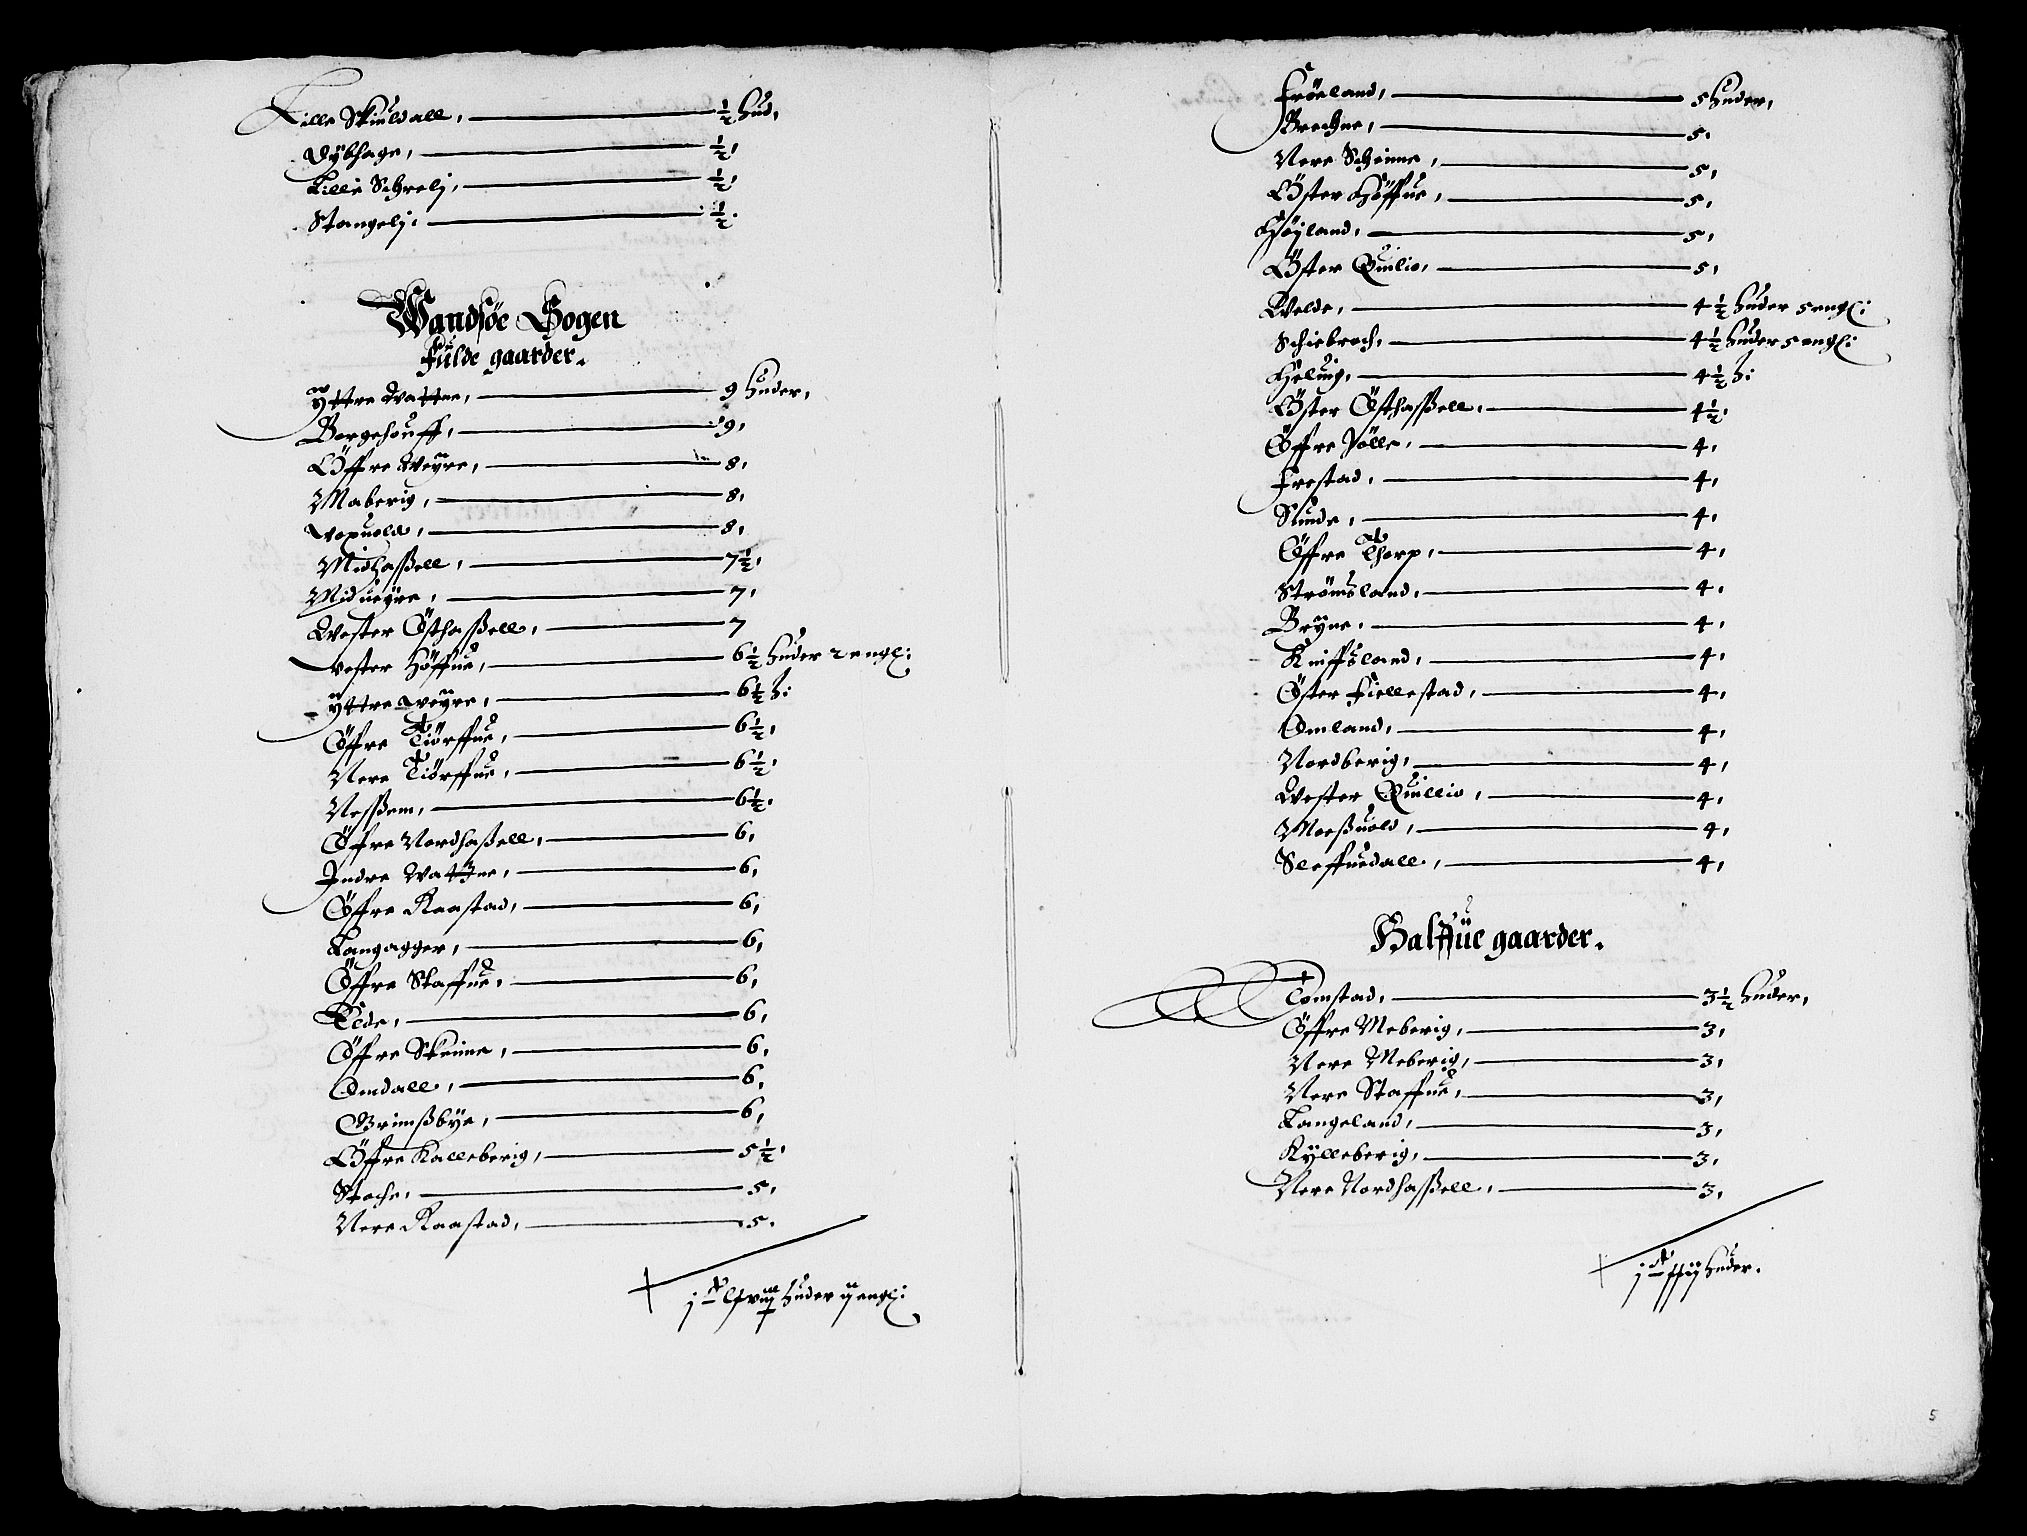 Lille Skiuldall, ½ Hud,
Dybhage, ½,
Lille Schrelj, ½,
Stangelj, ½.
Wandsöe Sogen
Fulde gaarder.
Ÿttre Wattne, 9 Huder,
Borgehouff, 9,
Öffre Weyre, 8,
Maberig, 8,
Woxuold, 8,
Midhassell, 7½,
Midueyre, 7,
Wester Östhassell, 7
Wester Höffue, 6½ Huder 2 engl:
Ÿttre Weyre, 6½ H:
Öffre Tiörffue, 6½,
Nere Tiörffue, 6½,
Nessem, 6½.
Öffre Nordhassell, 6,
Indre Watzne, 6,
Öffre Raastad, 6,
Langagger, 6,
Öffre Staffue, 6,
Elde, 6,
Öffre Skeime, 6,
Omdall, 6,
Grimssbye, 6,
Öffre Kalleberig, 5½,
Stoche, 5,
Nere Raastad, 5.
jc lxviij Huder ij engl:
Fröeland, 5 Huder,
Brechne, 5.
Nere Scheime, 5,
Öster Höffue, 5,
Höyland, 5,
Öster Quilio, 5,
Welde, 4½ Huder 5 engl:
Schiebroch, 4½ Huder 5 engl:
Heluig, 4½ H:
Öster Östhassell, 4½.
Öffre Jölle, 4,
Frestad, 4,
Sunde, 4,
Öffre Thorp, 4,
Strömsland, 4,
Bryne, 4,
Kniffsland, 4,
Öster Fiellestad, 4,
Omland, 4,
Nordberig, 4,
Wester Quillio, 4,
Mossuold, 4,
Sleffuedall, 4,
Halffue gaarder.
Tomstad, 3½ Huder,
Öffre Meberig, 3,
Nere Meberig, 3,
Nere Staffue, 3,
Langeland, 3,
Kylleberig, 3,
Nere Nordhassell, 3,
Huder.
5